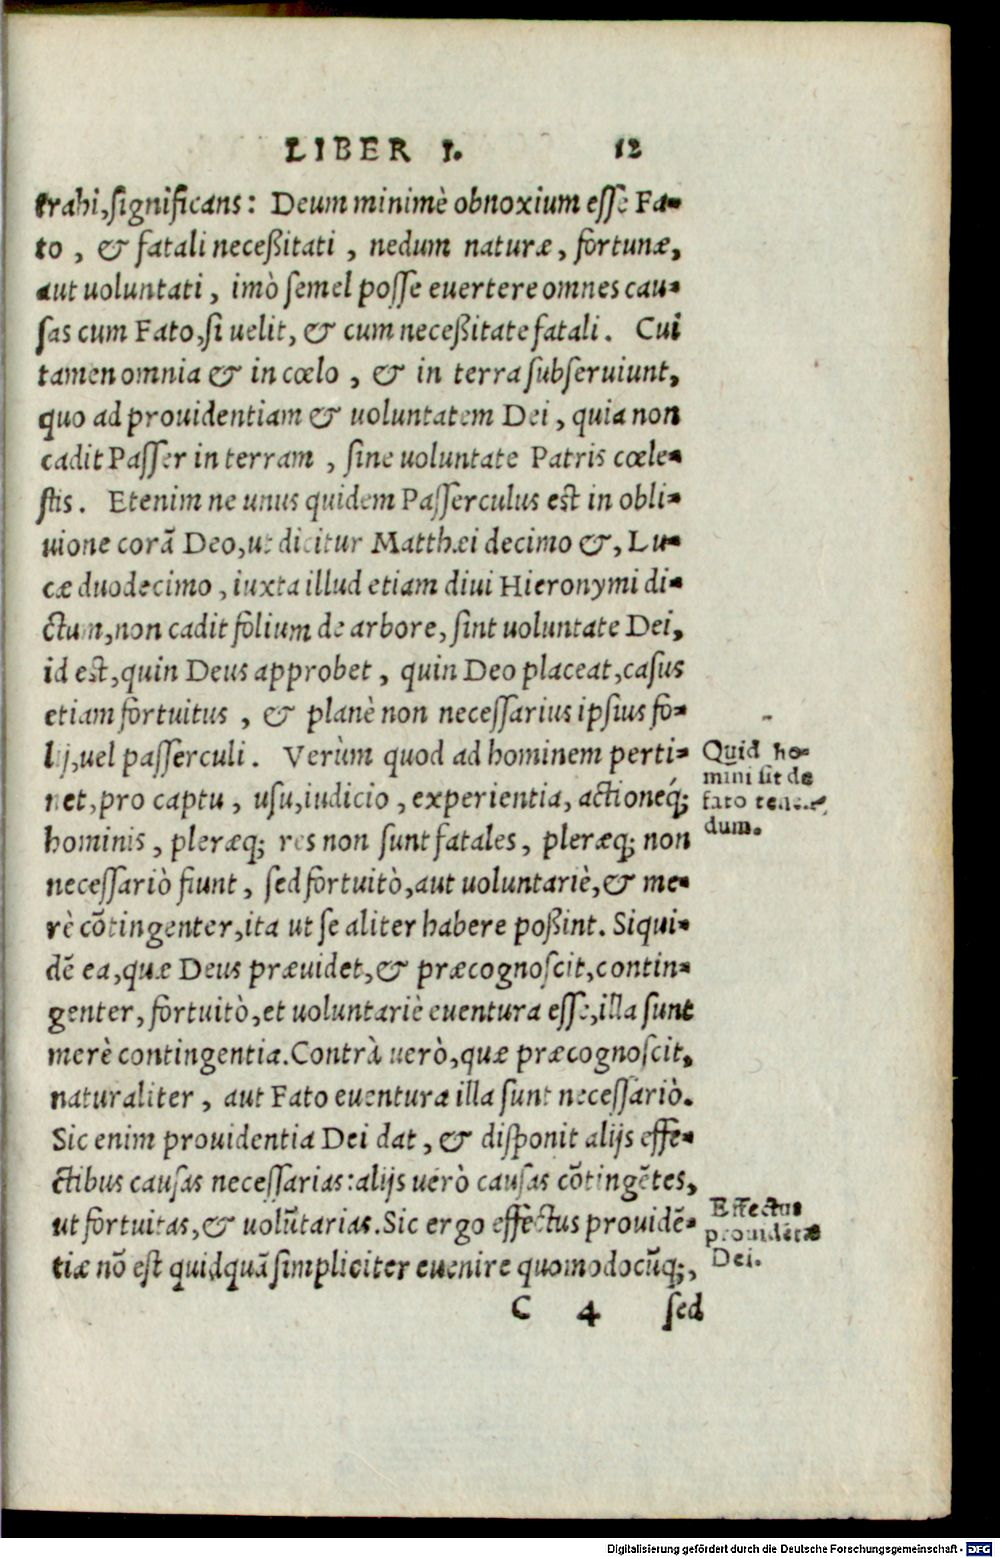 LIBER I. 12
trahi, significans: Deum minimè obnoxium esse Fa-
to, & fatali neceßitati, nedum naturæ, fortunæ,
aut uoluntati, imò semel posse euertere omnes cau-
sas cum Fato, si uelit, & cum neceßitate fatali. Cui
tamen omnia & in cœlo, & in terra subseruiunt,
quo ad prouidentiam & uoluntatem Dei, quia non
cadit Passer in terram, sine uoluntate Patris cœle-
stis. Etenim ne unus quidem Passerculus est in obli-
uione corā Deo, ut dicitur Matthæi decimo &, Lu-
cæ duodecimo, iuxta illud etiam diui Hieronymi di-
ctum, non cadit folium de arbore, sint uoluntate Dei,
id est, quin Deus approbet, quin Deo placeat, casus
etiam fortuitus, & planè non necessarius ipsius fo-
lij, uel passerculi. Verùm quod ad hominem perti-
net, pro captu, usu, iudicio, experientia, actioneq́;
hominis, pleræq; res non sunt fatales, pleræq; non
necessariò fiunt, sed fortuitò, aut uoluntariè, & me-
rè cōtingenter, ita ut se aliter habere poßint. Siqui-
dē ea, quæ Deus præuidet, & præcognoscit, contin-
genter, fortuitò, et uoluntariè euentura esse, illa sunt
merè contingentia. Contrà uerò, quæ præcognoscit,
naturaliter, aut Fato euentura illa sunt necessariò.
Sic enim prouidentia Dei dat, & disponit alijs effe-
ctibus causas necessarias: alijs uerò causas cōtingētes,
ut fortuitas, & uolūtarias. Sic ergo effectus prouidē-
tiæ nō est quidquā simpliciter euenire quomodocūq;,
C 4 sed
Quid ho-
mini sit de
fato tenen-
dum.
Effectus
prouidētiæ
Dei.
Digitalisierung gefördert durch die Deutsche Forschungsgemeinschaft - DFG